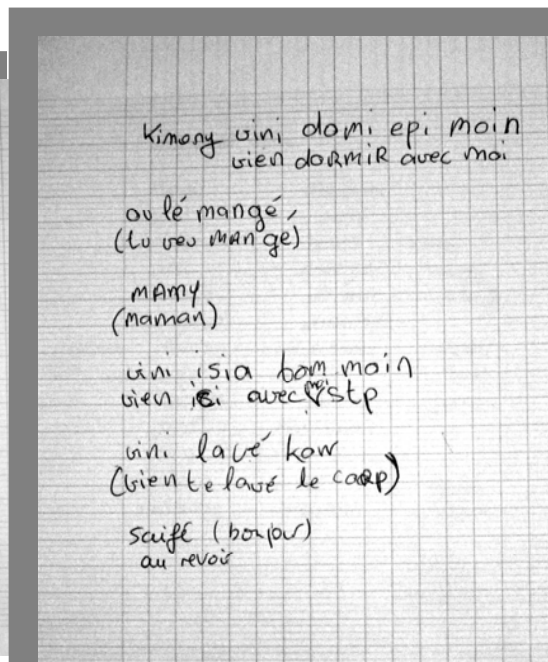 Kimany vini domi epi moin
vien dormir avec moi
ou lé mangé,
(tu veu mangé)
mamy
(maman)
vini isia bom moin
vien ici avec moi stp
vini lavé kow
(vien te lavé le carp)
saifé (bonjour)
au revoir